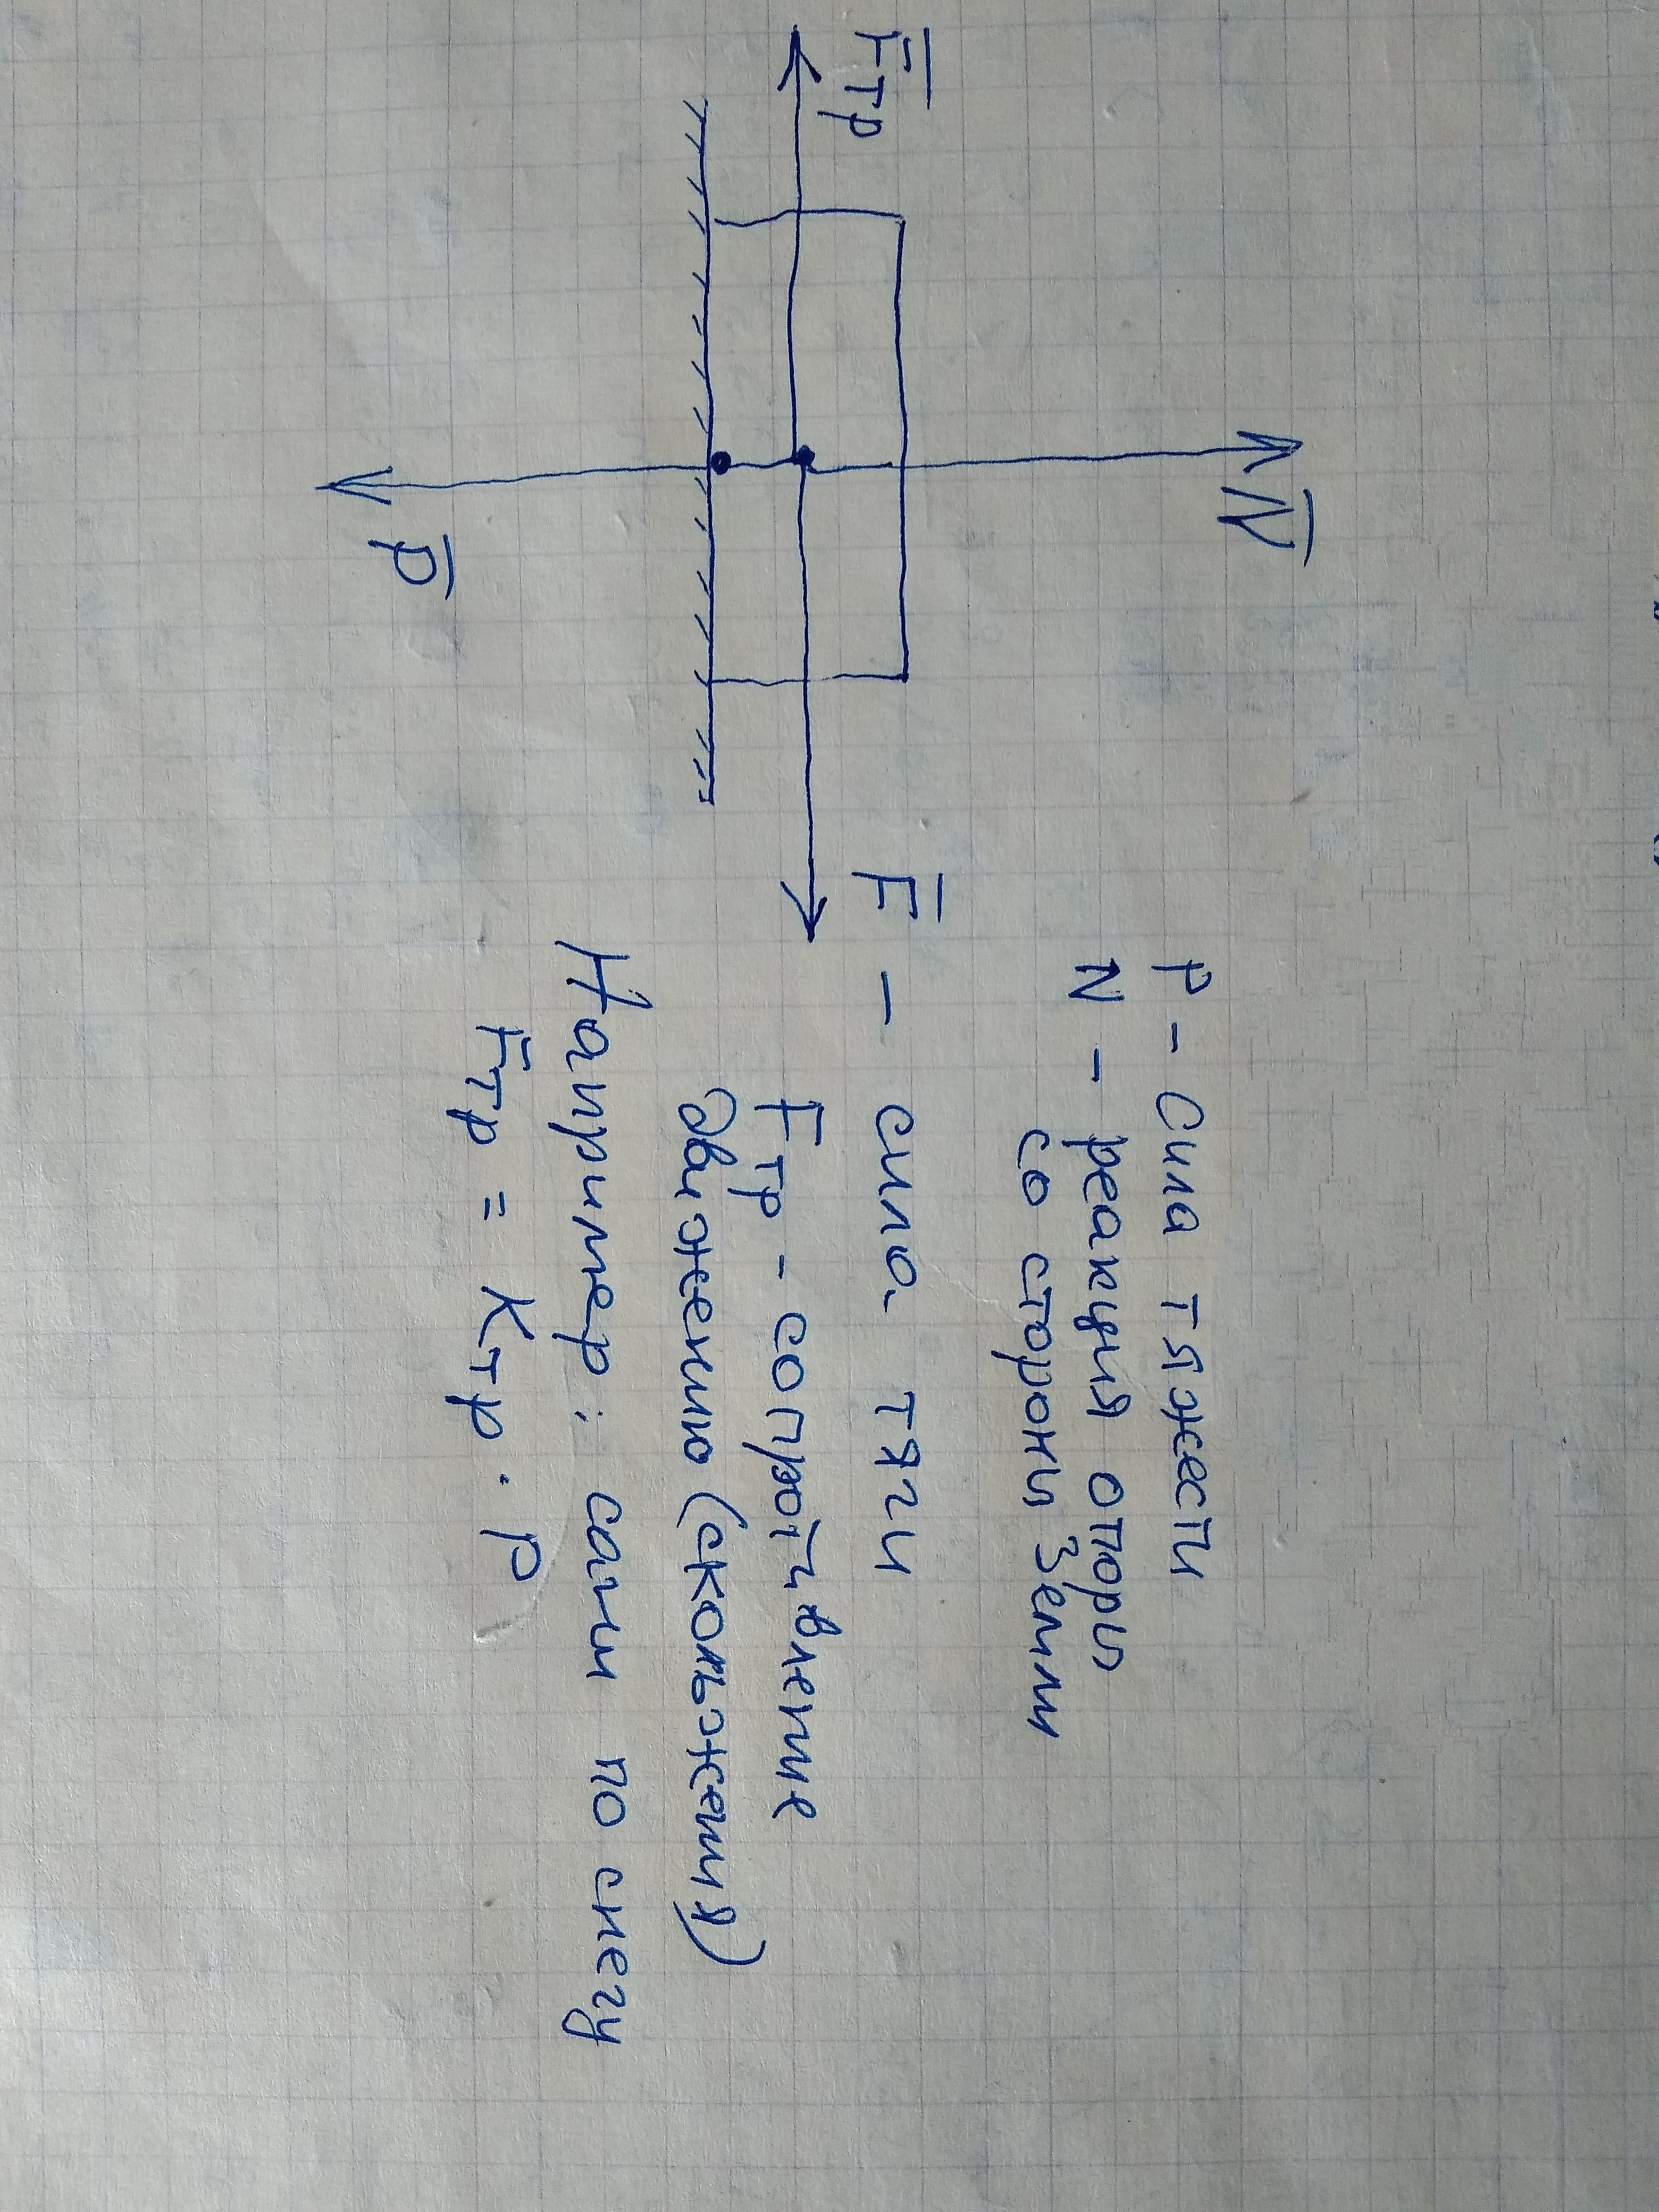 N̅
P - Сила тяжести
N - реакция опоры
со стороны Земли
F̅тр
F̅ - сила тяги
Fтр - сопротивление
движению (скольжения)
Например: сани по снегу
P̅
Fтр = Kтр · P